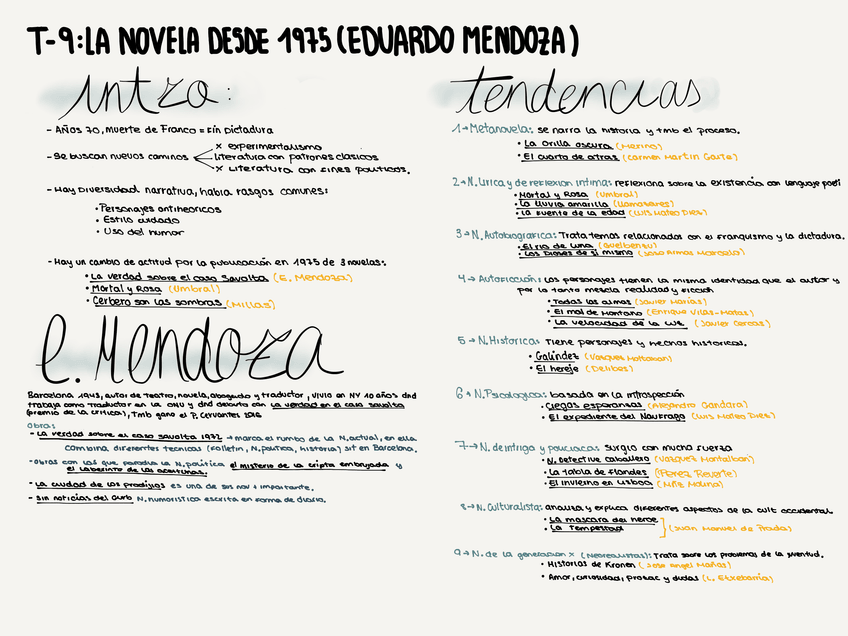 T-9: LA NOVELA DESDE 1975 (EDUARDO MENDOZA)
intro:
- AÑOS 70, muerte de Franco = Fin Dictadura
- Se buscan nuevos caminos
x experimentalismo
literatura con patrones clasicos
x Literatura con fines politicos.
- Hay Diversidad narrativa, habia rasgos comunes:
• Personajes antiheroicos
• Estilo cuidado
• Uso del humor
- Hay un cambio de actitud por la publicación en 1975 de 3 novelas:
• La verdad sobre el caso Savolta (E. Mendoza)
• Mortal y Rosa (Umbral)
• Cerbero son las sombras (Millas)
E. Mendoza
Barcelona 1943, autor de teatro, novela, abogado y traductor, vivio en NY 10 años dnd
trabaja como traductor en la ONU y dnd debuta con la verdad en el caso savolta
(premio de la critica), Tmb gano el P. Cervantes 2016
obra:
- La verdad sobre el caso savolta 1972 → marca el rumbo de la N. actual, en ella
combina diferentes tecnicas (folletin, N. politica, historia) sit en Barcelona.
- obras con las que parodia la N. politica el misterio de la cripta embrujada y
el laberinto de las aceitunas.
- La ciudad de los prodigios es una de sus nov + importante.
- sin noticias del Gurb N. humoristica escrita en forma de diario.
tendencias
1→ Metanovela: se narra la historia y tmb el proceso.
• La orilla oscura (Merino)
• El cuarto de atras (Carmen Martin Gaite)
2→ N. Lirica y de reflexion intima: reflexiona sobre la existencia con lenguaje poeti
• Mortal y Rosa (Umbral)
• La lluvia amarilla (Llamazares)
• La fuente de la edad (Luis Mateo Diez)
3→ N. Autobiografica: Trata temas relacionados con el franquismo y la dictadura.
• El rio de luna (Guelbenzu)
• Los Dioses de si mismo (Juan Armas Marcelo)
4→ Autoficción: los personajes tienen la misma identidad que el autor y
por lo tanto mezcla realidad y ficcion
• Todas las almas (Javier Marías)
• El mal de Montano (Enrique Vilas-Matas)
• La velocidad de la luz (Javier Cercas)
5→ N. Historica: Tiene personajes y hechos historicos.
• Galindez (Vazques Moltalban)
• El hereje (Delibes)
6→ N. Psicologica: basada en la introspección
• Ciegas esperanzas (Alejandro Gandara)
• El expediente del Naufrago (Luis Mateo Diez)
7→ N. de intriga y policiaca: surgio con mucha fuerza
• N. Detective caballero (Vazquez Montalban)
• La tabla de flandes (Pérez Reverte)
• El invierno en Lisboa (Mñz Molina)
8→ N. Culturalista: analiza y explica diferentes aspectos de la cult occidental.
• La mascara del heroe
• La Tempestad
(Juan Manuel de Prada)
9→ N. de la generacion x (Neorrealistas): Trata sobre los problemas de la juventud.
• Historias de Kronen (Jose Angel Mañas)
• Amor, curiosidad, prozac y dudas (L. Etxebarria)